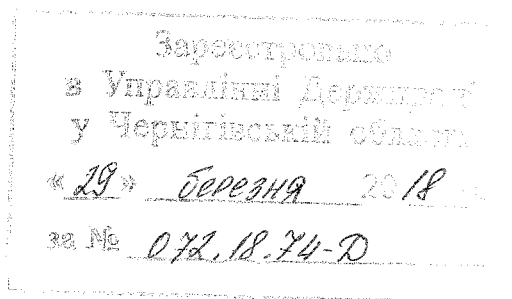 Зареєстровано
в Управлінні Держпраці
у Чернігівській області
«29» березня 2018
за № 072.18.74-Д